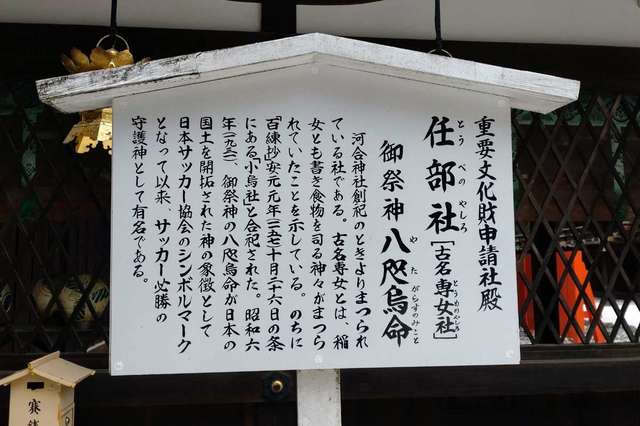 重要文化財申請社殿
任部社［古名専女社］
とうべのやしろ
とうめのやしろ
御祭神 八咫烏命
やたがらすのみこと
河合神社創祀のときよりまつられ
ている社である。古名専女とは、稲
女とも書き食物を司る神々がまつら
れていたことを示している。のちに
「百練抄」安元元年(一一七五)十月二十六日の条
にある「小烏社」と合祀された。昭和六
年(一九三一)、御祭神の八咫烏命が日本の
国土を開拓された神の象徴として
日本サッカー協会のシンボルマーク
となって以来、サッカー必勝の
守護神として有名である。
賽銭